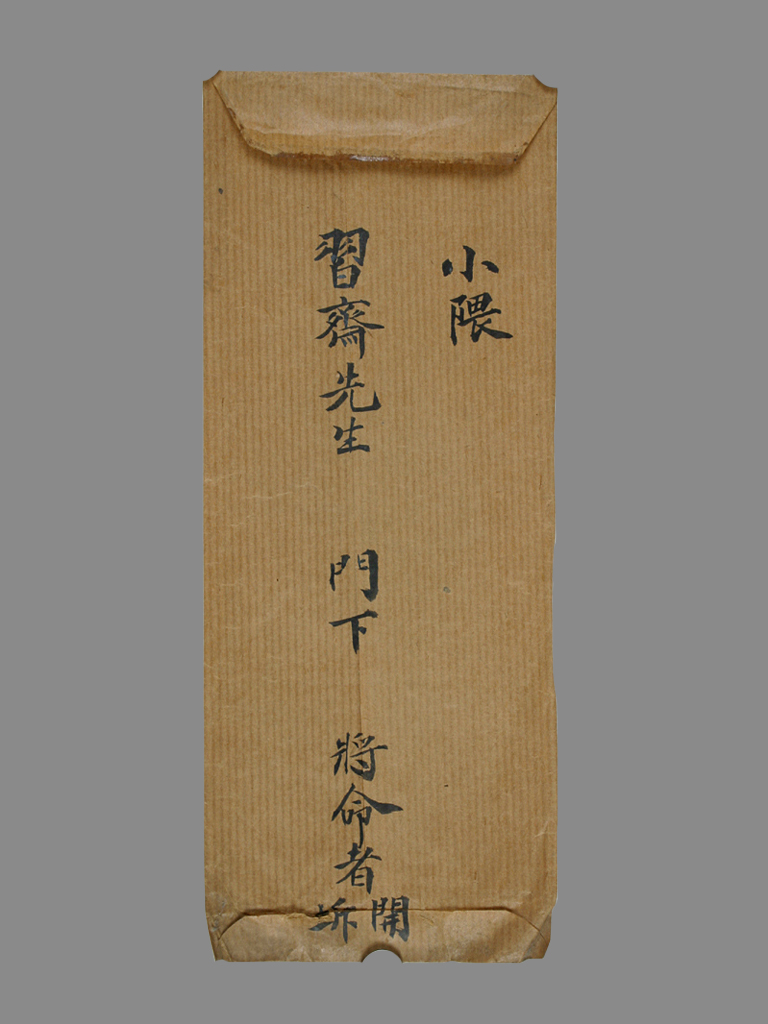 小隈
習齋先生 門下 將命者
開坼